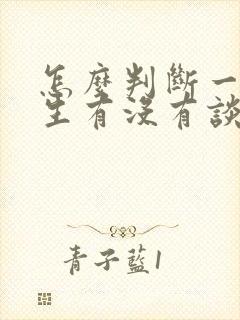 怎麼判斷一
生有沒有談
青子藍1